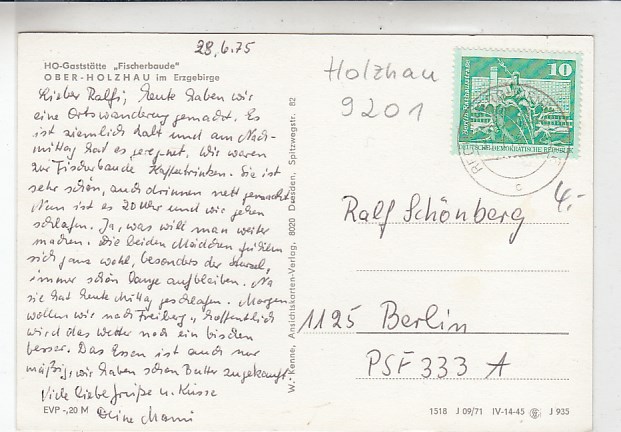 28.6.75
HO-Gaststätte „Fischerbaude"
OBER-HOLZHAU im Erzgebirge
Lieber Ralfi, heute haben wir
eine Ortswanderung gemacht. Es
ist ziemlich kalt und am Nach-
mittag hat es geregnet. Wir waren
zur Fischerbaude Kaffeetrinken. Sie ist
sehr schön, auch drinnen nett gemacht.
Nun ist es 20 Uhr und wir gehen
schlafen. Ja, was will man weiter
machen. Die beiden Mädchen fühlen
sich ganz wohl, besonders der
immer schön lange aufbleiben. Na
sie hat heute Mittag geschlafen. Morgen
wollen wir nach Freiberg, hoffentlich
wird das Wetter noch ein bischen
besser. Das Essen ist auch nur
mäßig, wir haben schon Butter zugekauft
Viele liebe Grüße u. Küsse
Deine Mami
EVP -,20 M
W. Kenne, Ansichtskarten-Verlag, 8020 Dresden, Spitzwegstr. 82
Holzhau
9201
10
DEUTSCHE DEMOKRATISCHE REPUBLIK
c
4,-
Ralf Schönberg
1125 Berlin
PSF 333 A
1518 J 09/71 IV-14-45 J 935